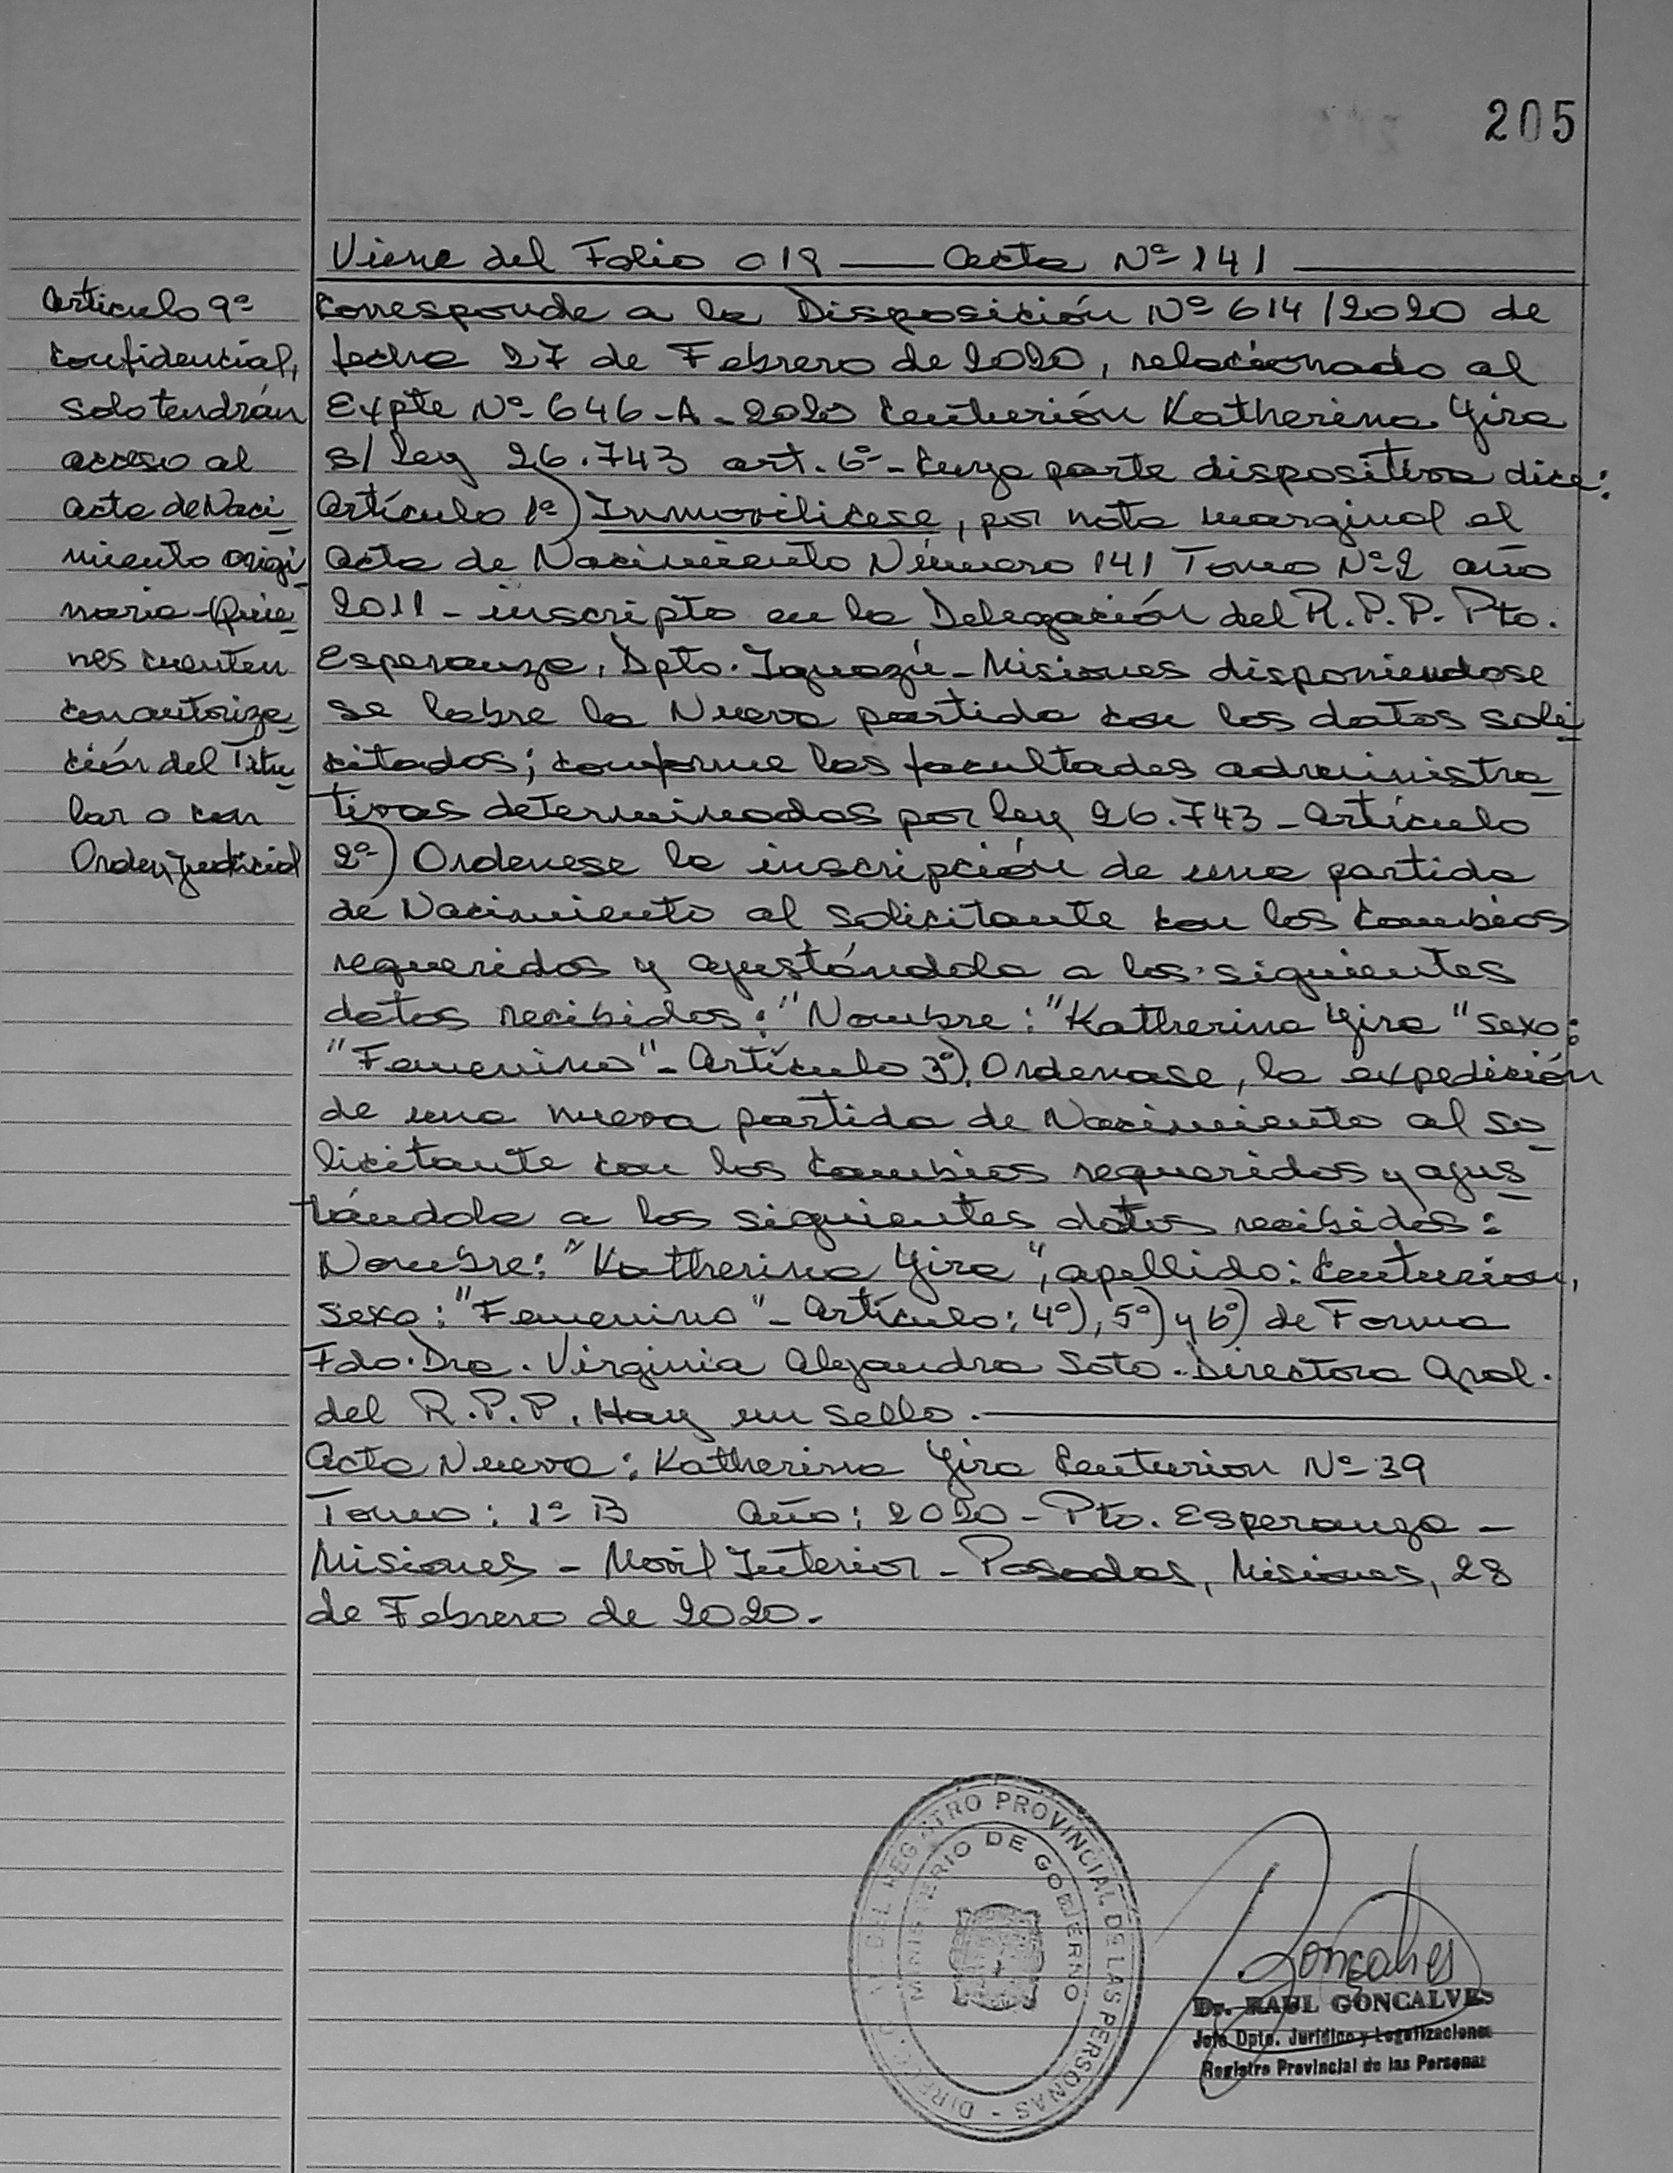 205
Viene del Folio 019 — Acta Nº 141
Artículo 9º
confidencial,
solo tendrán
acceso al
acta de Naci-
miento origi-
naria - Quie-
nes cuenten
con autoriza-
ción del Titu-
lar o con
Orden judicial
Corresponde a la Disposición Nº 614/2020 de
fecha 27 de Febrero de 2020, relacionado al
Expte Nº 646-A-2020 Centurión Katherina Yira
s/ ley 26.743 art. 6º - cuya parte dispositiva dice:
Artículo 1º) Inmovilicese, por nota marginal el
acta de Nacimiento Número 141 Tomo Nº 2 año
2011 - inscripto en la Delegación del R.P.P. Pto.
Esperanza, Dpto. Iguazú - Misiones disponiendose
se labre la Nueva partida con los datos soli-
citados; conforme las facultades administra-
tivas determinadas por ley 26.743 - Artículo
2º) Ordenese la inscripción de una partida
de Nacimiento al solicitante con los cambios
requeridos y ajustándola a los siguientes
datos recibidos: "Nombre: "Katherina Yira" sexo:
"Femenino" - Artículo 3º). Ordenase, la expedición
de una nueva partida de Nacimiento al so-
licitante con los cambios requeridos y ajus-
tándola a los siguientes datos recibidos:
Nombre: "Katherina Yira", apellido: Centurion,
sexo: "Femenino" - Artículo: 4º), 5º) y 6º) de Forma
Fdo. Dra. Virginia Alejandra Soto. Directora Gral.
del R.P.P. Hay un sello.
Acta Nueva: Katherina Yira Centurion Nº 39
Tomo: 1º B Año: 2020 - Pto. Esperanza -
Misiones - Movil Interior - Posadas, Misiones, 28
de Febrero de 2020.
REGISTRO PROVINCIAL DE LAS PERSONAS
MINISTERIO DE GOBIERNO
Gonçalves
Dr. RAUL GONCALVES
Jefe Dpto. Jurídico y Legalizaciones
Registro Provincial de las Personas